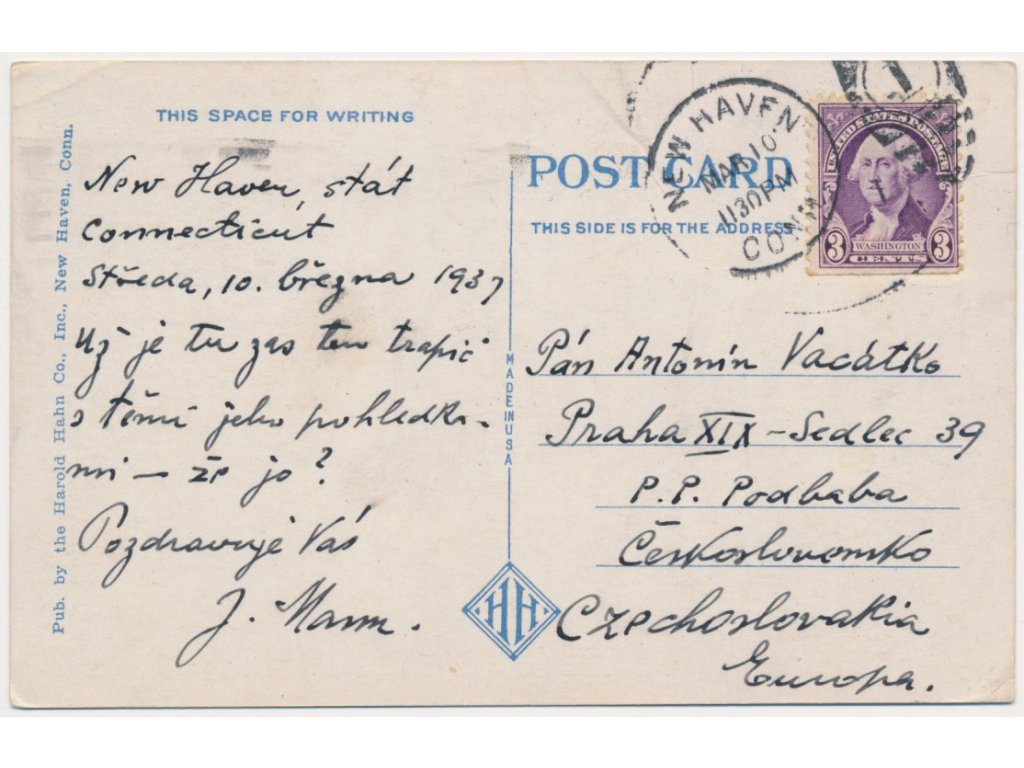 THIS SPACE FOR WRITING
New Haven, stát
Connecticut
Středa, 10. března 1937
Už je tu zas ten trapič
s těmi jeho pohledka-
mi — že jo?
Pozdravuje Vás
J. Mann.
Pub. by the Harold Hahn Co., Inc., New Haven, Conn.
MADE IN USA
HH
POST CARD
THIS SIDE IS FOR THE ADDRESS
NEW HAVEN
MAR 10
1130PM
CONN.
1
UNITED STATES POSTAGE
3 WASHINGTON 3
CENTS
Pán Antonín Vacátko
Praha XIX - Sedlec 39
P.P. Podbaba
Československo
Czechoslovakia
Europa.